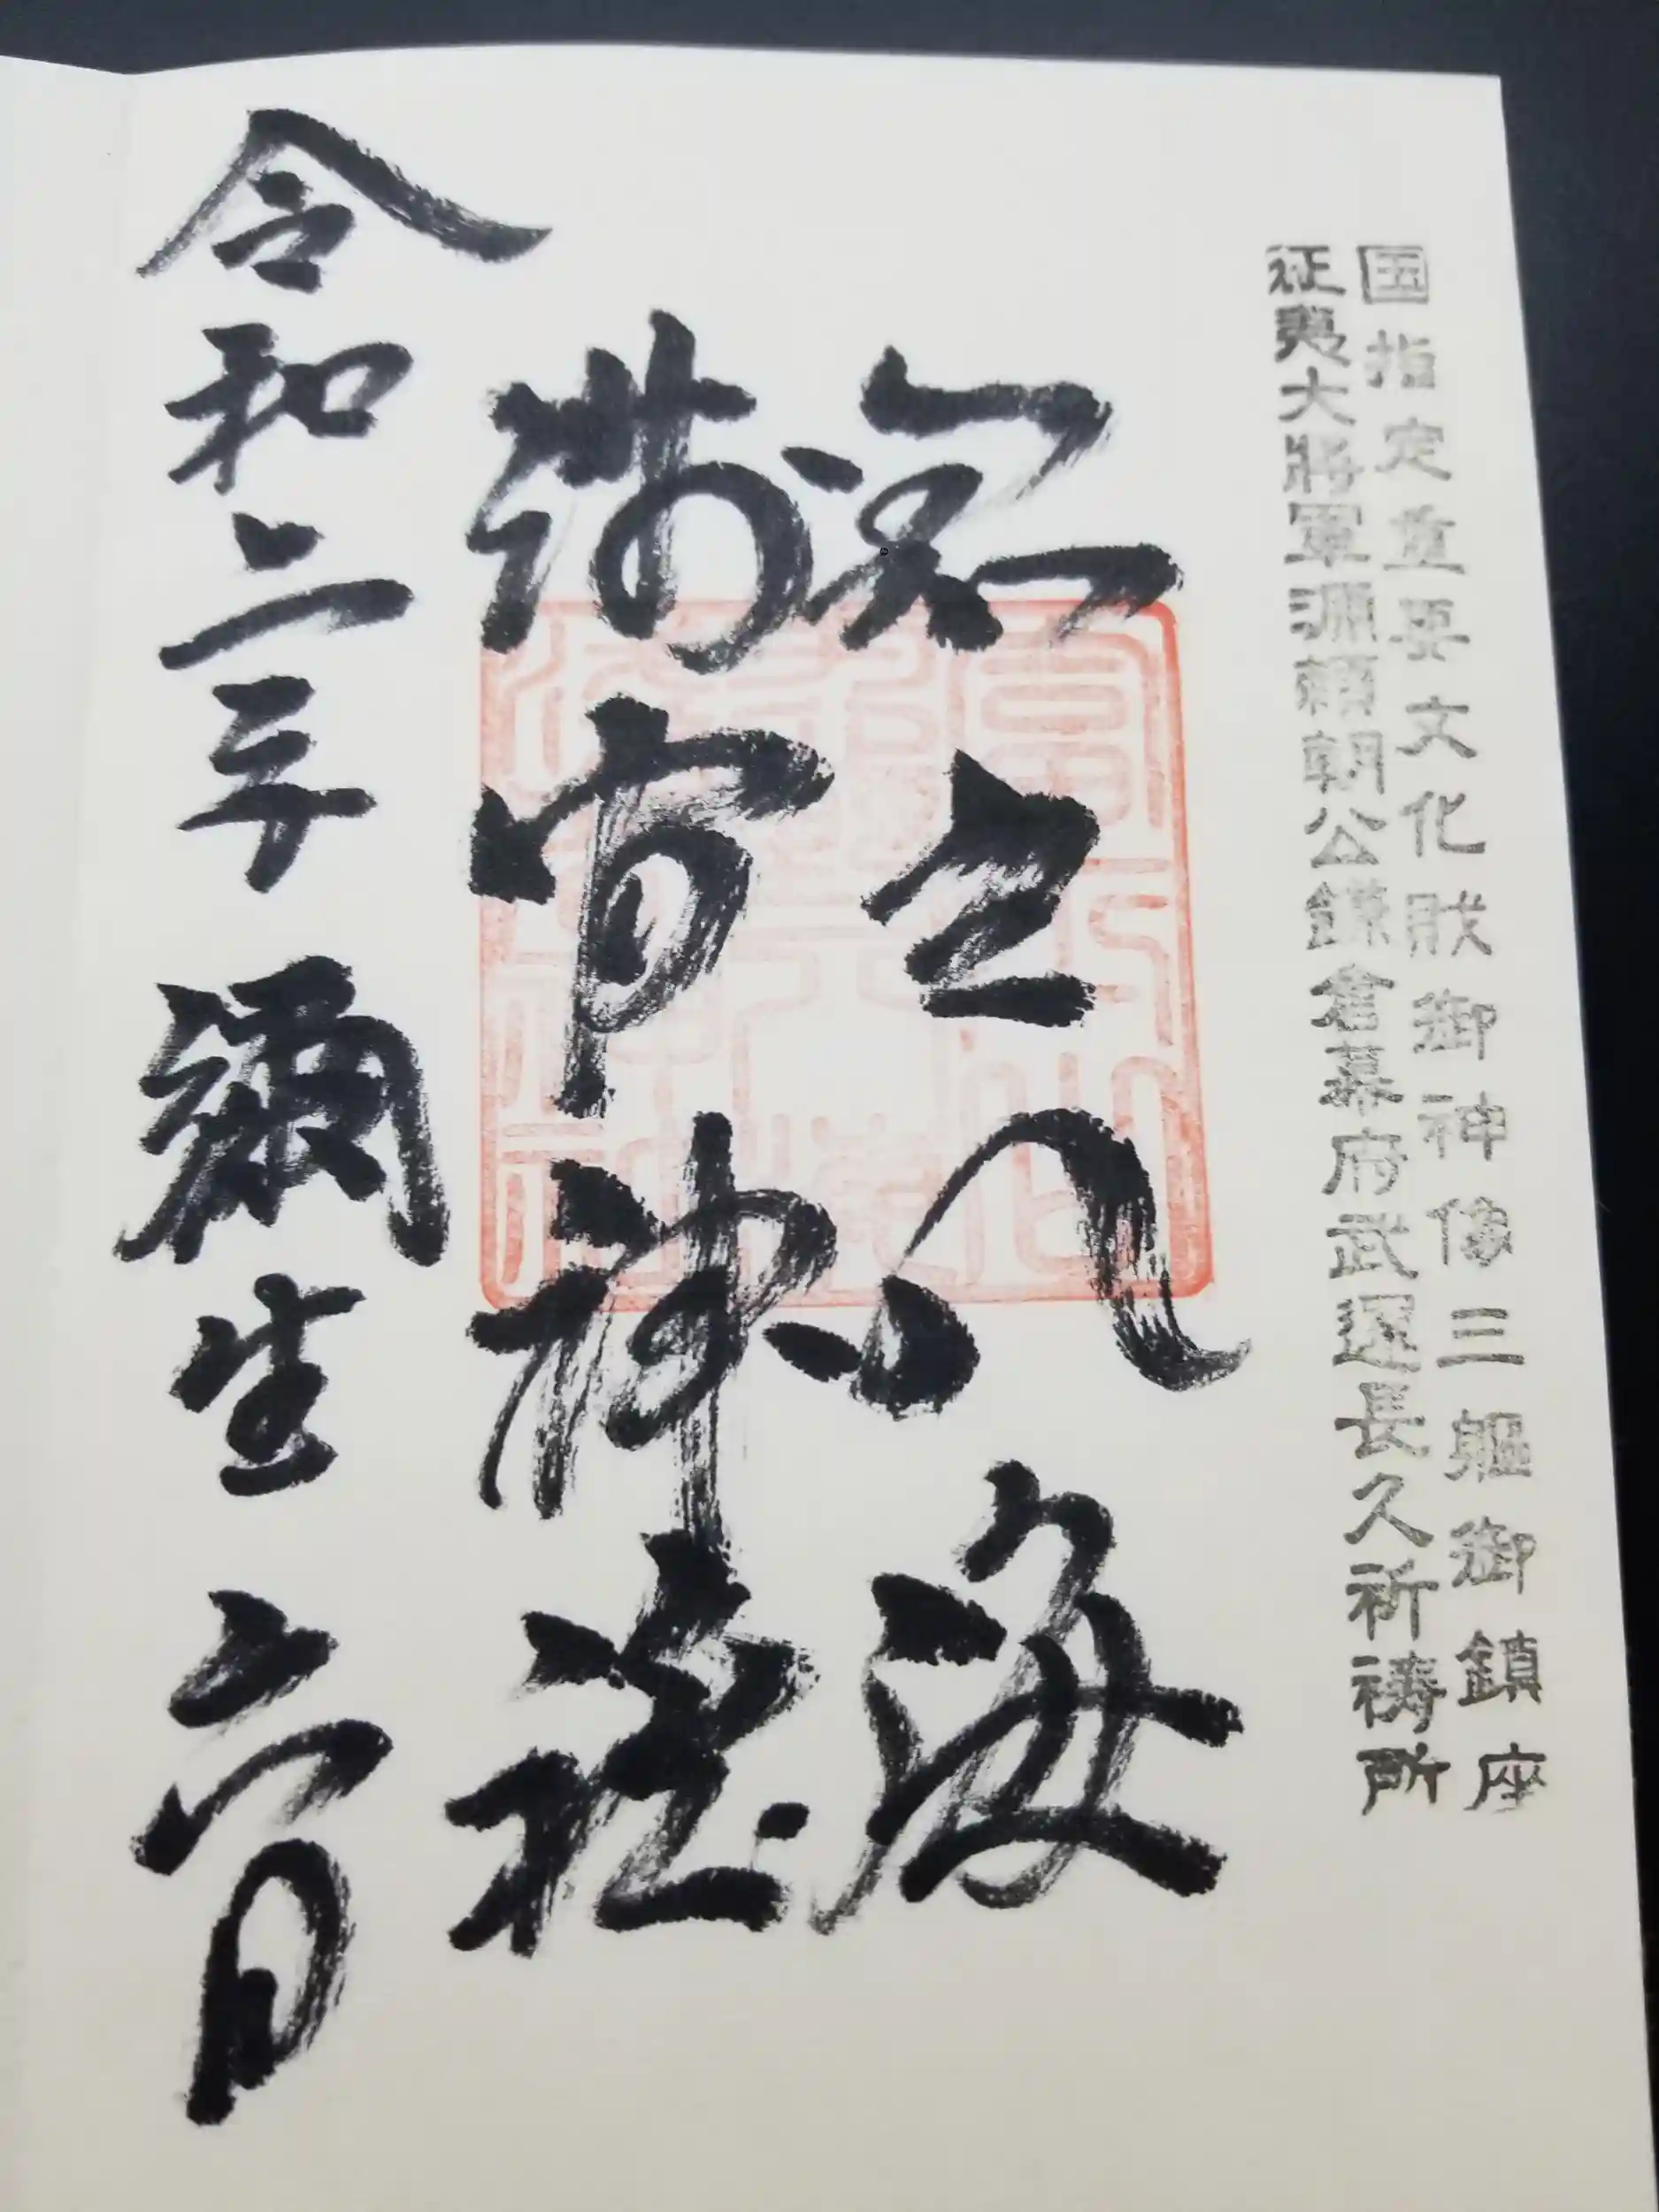 国指定重要文化財御神像三躯御鎮座
征夷大將軍源頼朝公鎌倉幕府武運長久祈祷所
忍之八海
浅間神社
令和二年 彌生 六日